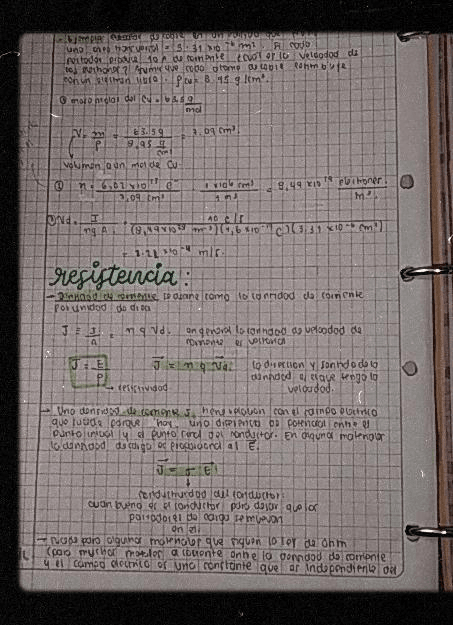 de cobre en un
uno area transversal = 3.31 x10⁻⁶ m². Si cada
portador produce 10 A de corriente ¿cual es la velocidad de
los electrones? Asume que cada átomo de cobre contribuye
con un electron libre. ρcu = 8.95 g/cm³.
① masa molar del Cu = 63.5 g/mol
V = m/ρ = 63.5g / 8.95 g/cm³ = 7.09 cm³
volumen a un mol de Cu.
② n = 6.02 x10²³ e⁻ / 7.09 cm³ · 1x10⁶ cm³ / 1 m³ = 8.49 x10²⁸ electrones/m³
③ Vd = I / nqA = 10 C/s / (8.49x10²⁸ m⁻³)(1.6 x10⁻¹⁹ C)(3.31 x10⁻⁶ m²)
= 2.22 x10⁻⁴ m/s.
resistencia:
→ Densidad de corriente se define como la cantidad de corriente
por unidad de area
J = I/A = n q Vd. en general la cantidad de velocidad de
corriente es vectorial
J = E/ρ J = n q Vd. la direccion y sentido de la
→ resistividad densidad es la que tenga la
velocidad.
→ Una densidad de corriente J, tiene relación con el campo electrico
que sucede porque hay una diferencia de potencial entre el
punto inicial y el punto final del conductor. En algunos materiales
la densidad de carga es proporcional al E.
J = σ E
conductividad del conductor:
cuan bueno es el conductor para dejar que los
portadores de carga se muevan
en el.
→ para algunos materiales que siguen la ley de ohm
(para muchos metales) el cociente entre la densidad de corriente
y el campo electrico es una constante que es independiente del